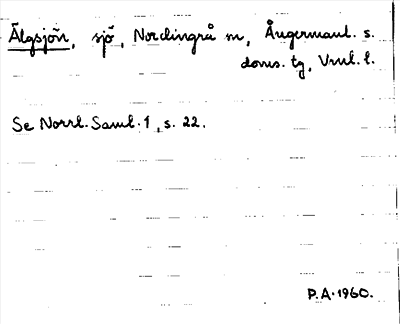 Älgsjön, sjö, Nordingrå sn, Ångermanl. s.
doms. tg, Vnl. l.
Se Norrl. Saml. 1, s. 22.
P.A. 1960.